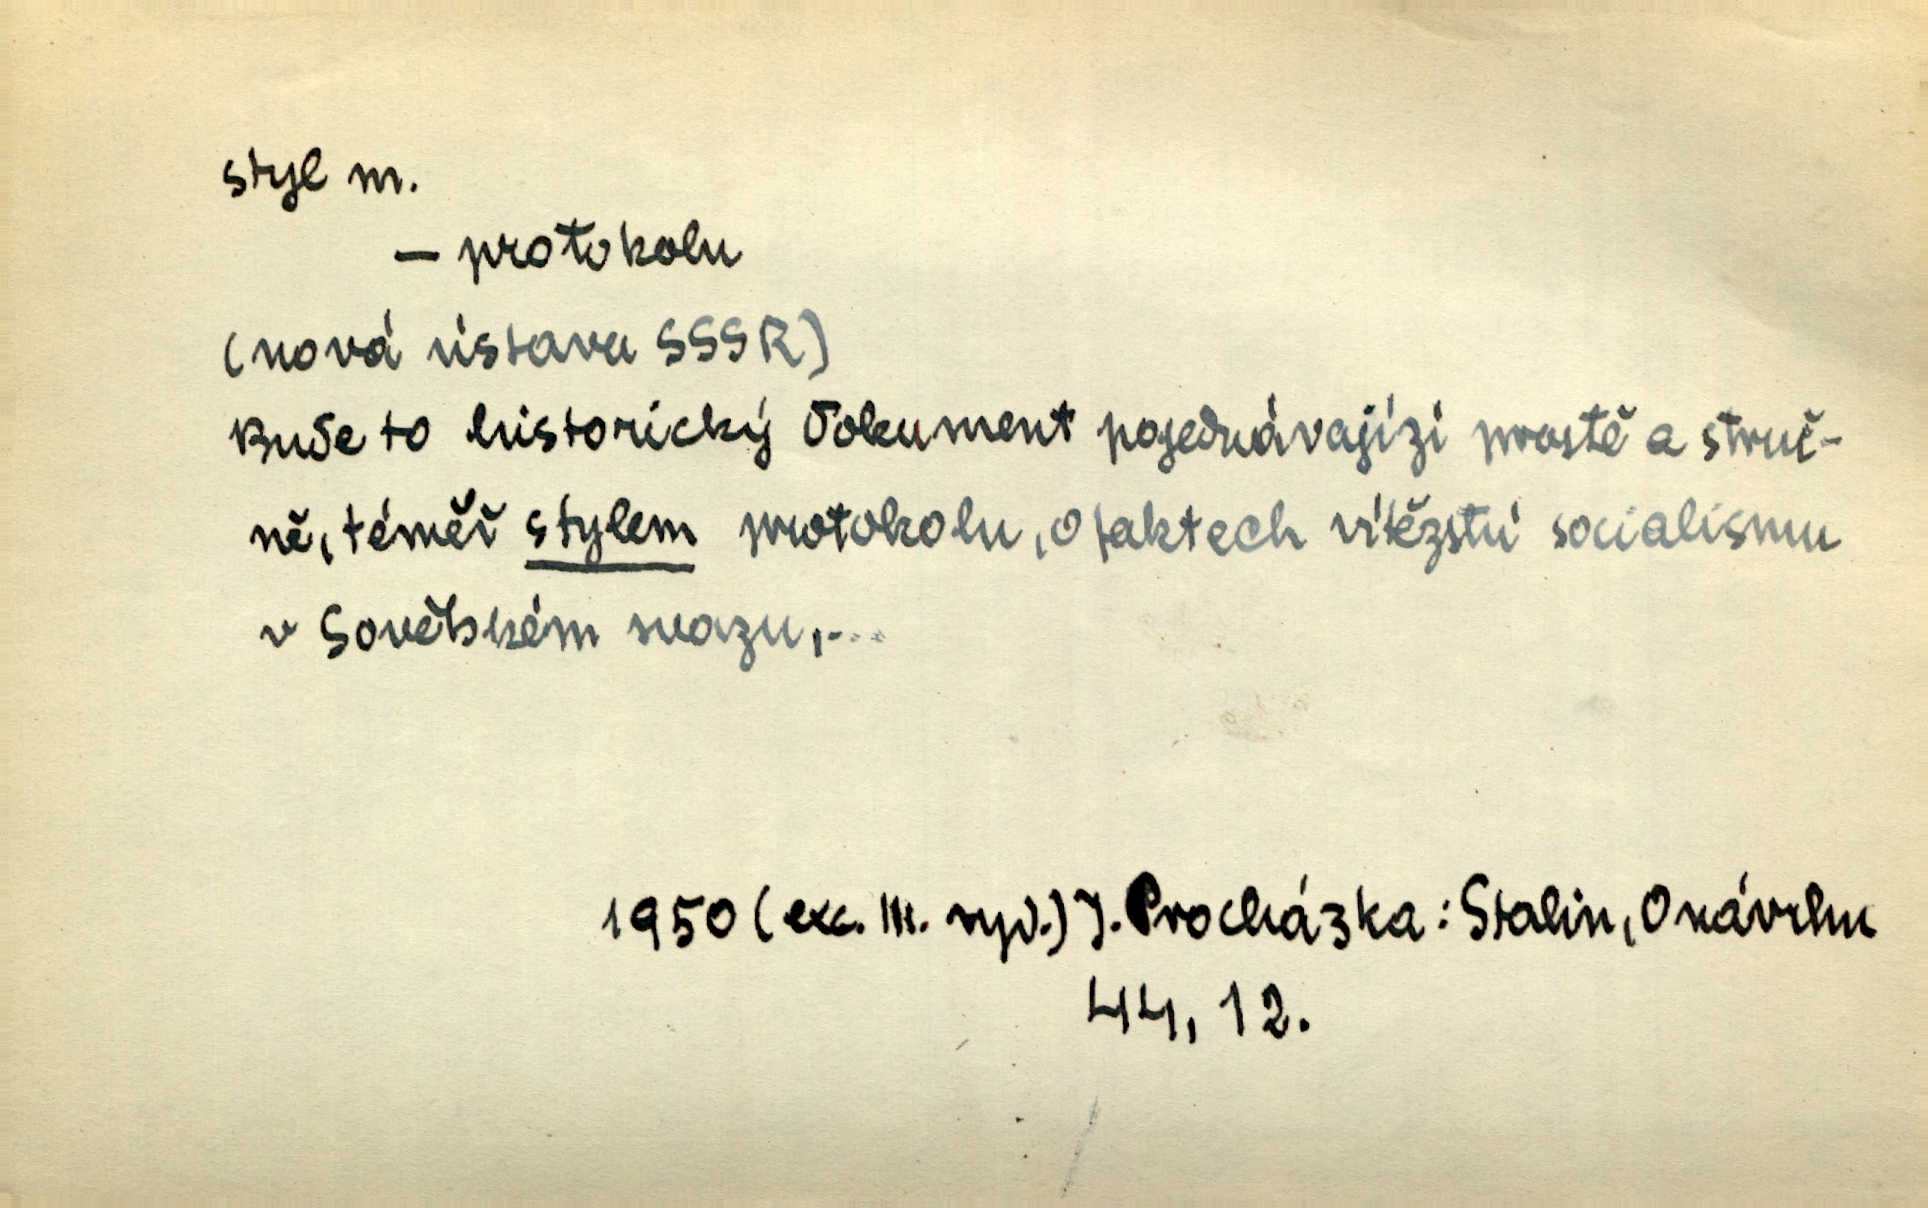 styl m.
– protokolu
(nová ústava SSSR)
Bude to historický dokument pojednávajízí prostě a struč-
ně, téměř stylem protokolu, o faktech vítězství socialismu
v Sovětském svazu,...
1950 (exc. III. vyd.) J. Procházka: Stalin, O návrhu
44, 12.